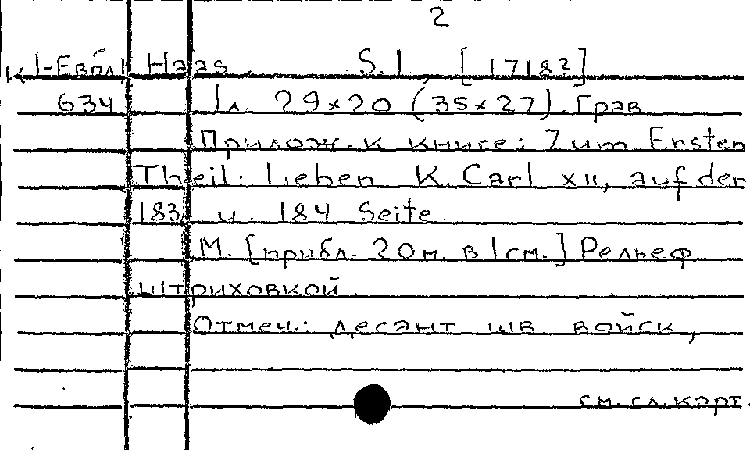 2
К 1-Евбл Haas. S.l., [1718?]
634 1 л. 29×20 (35×27). Грав.
Прилож. к книге: Zum Ersten
Theil: Leben K. Carl XII, auf der
183 u. 184 Seite
М. [прибл. 20м. в 1см.] Рельеф
штриховкой
Отмеч.: десант шв. войск,
см. сл. карт.